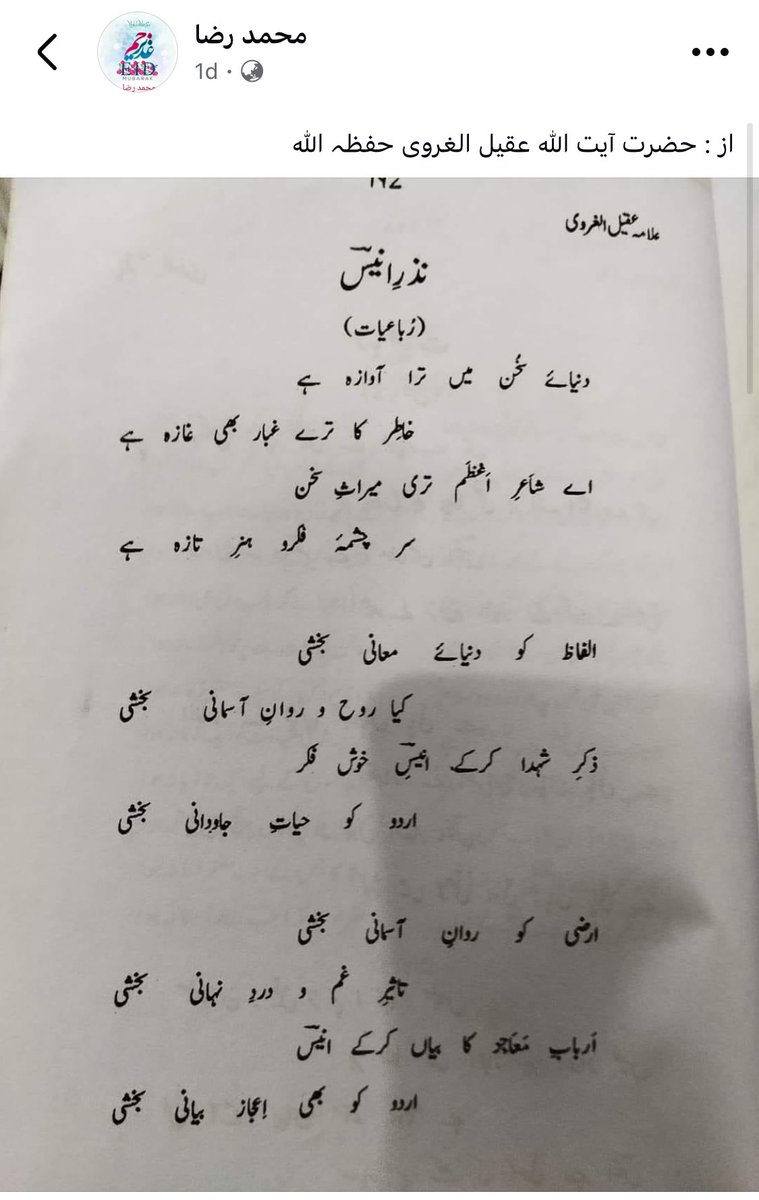 محمد رضا
1d
غدیر خم
EID
MUBARAK
محمد رضا
از : حضرت آیت اللہ عقیل الغروی حفظہ اللہ
۱۹۲
علامہ عقیل الغروی
نذرِ انیسؔ
(رُباعیات)
دنیائے سُخن میں ترا آوازہ ہے
خاطِر کا ترے غبار بھی غازہ ہے
اے شاعَرِ اَعْظَم تری میراثِ سخن
سر چشمۂ فکرو ہنرِ تازہ ہے
الفاظ کو دنیائے معانی بخشی
کیا روح و روانِ آسمانی بخشی
ذکرِ شہدا کرکے انیسؔ خوش فکر
اردو کو حیاتِ جاودانی بخشی
ارضی کو روانِ آسمانی بخشی
تاثیرِ غم و دردِ نہانی بخشی
اَربابِ مَعَاجز کا بیاں کرکے انیسؔ
اردو کو بھی اِعجاز بیانی بخشی